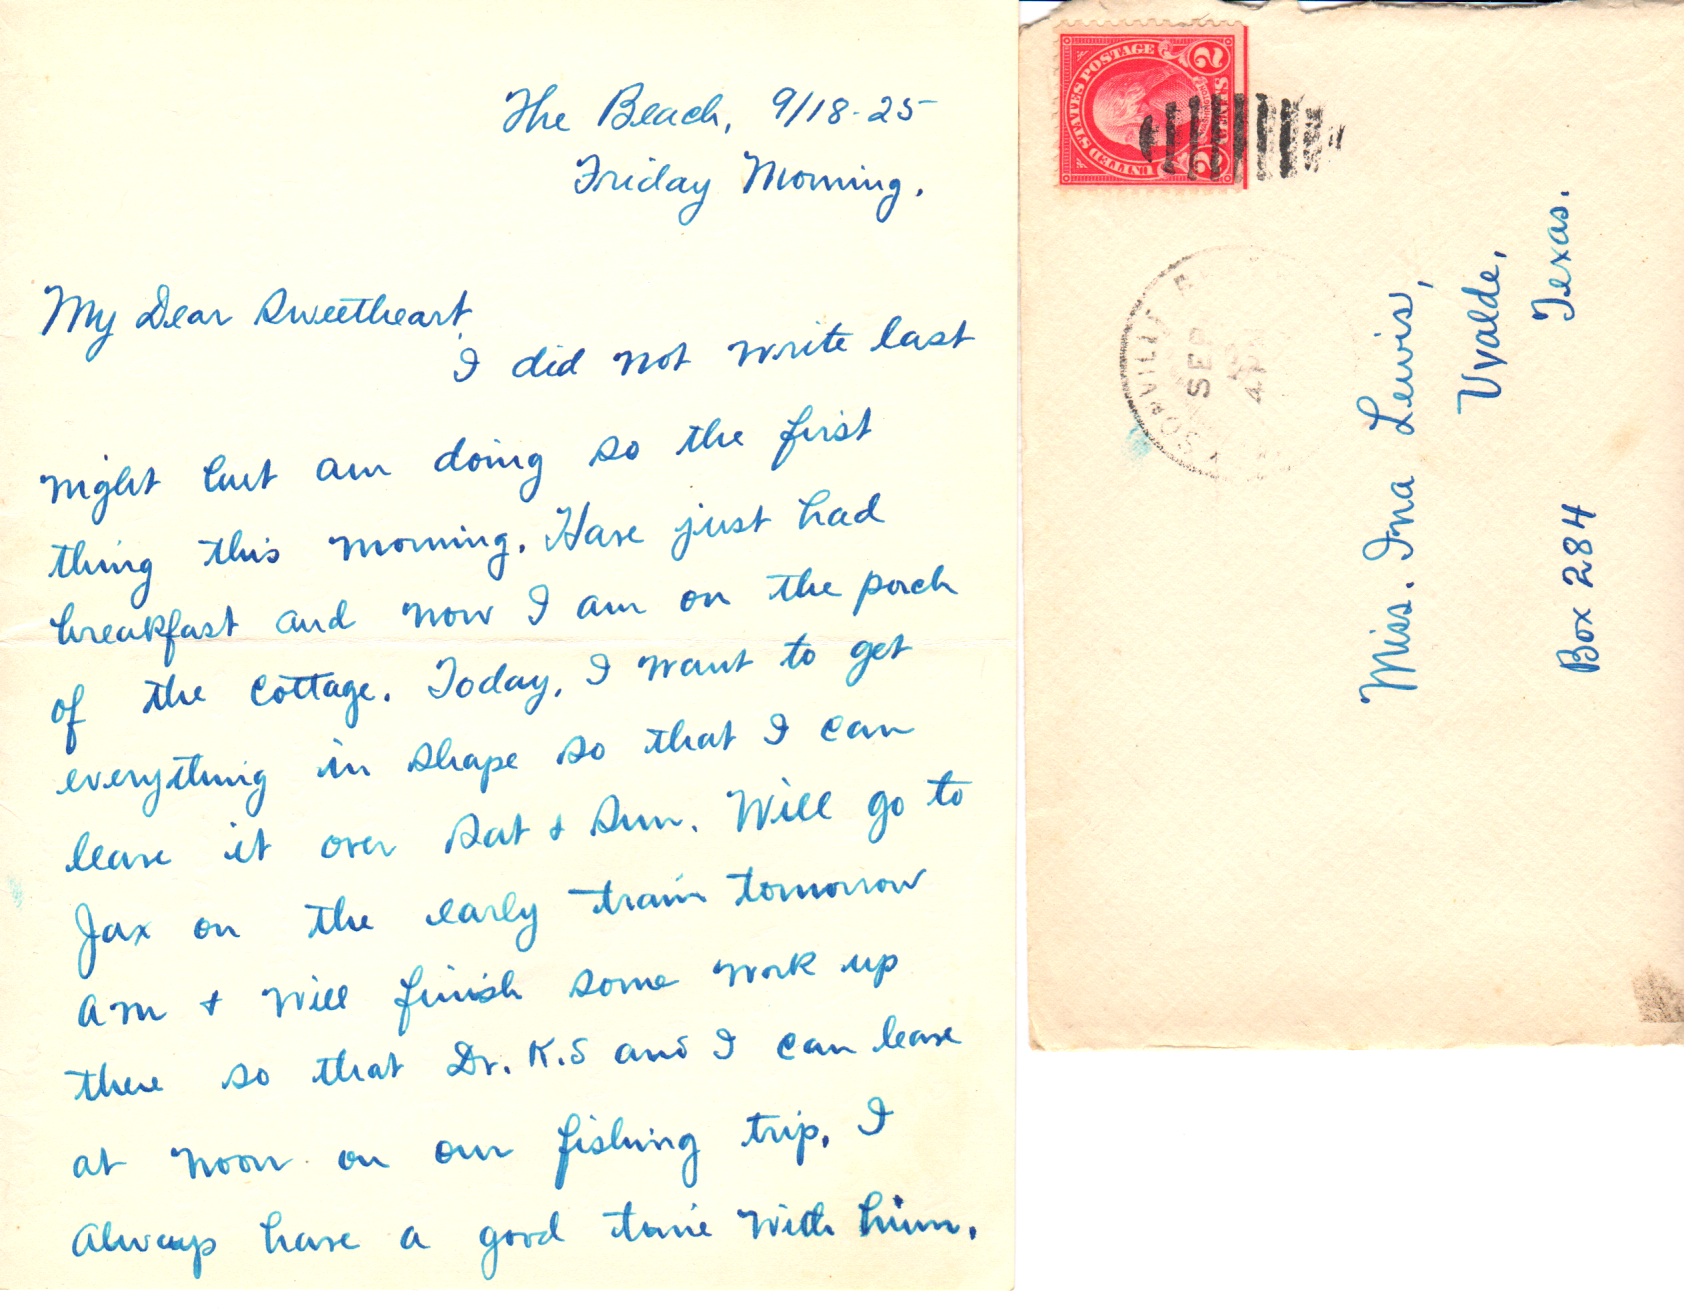 The Beach, 9/18-25
Friday Morning.
My Dear Sweetheart,
I did not write last
night but am doing so the first
thing this morning. Have just had
breakfast and now I am on the porch
of the cottage. Today, I want to get
everything in shape so that I can
leave it over Sat & Sun. Will go to
Jax on the early train tomorrow
am & will finish some work up
there so that Dr. K.S and I can leave
at noon on our fishing trip. I
always have a good time with him.
UNITED STATES POSTAGE
2 2
SEP
Miss. Ina Lewis,
Uvalde,
Box 284 Texas.